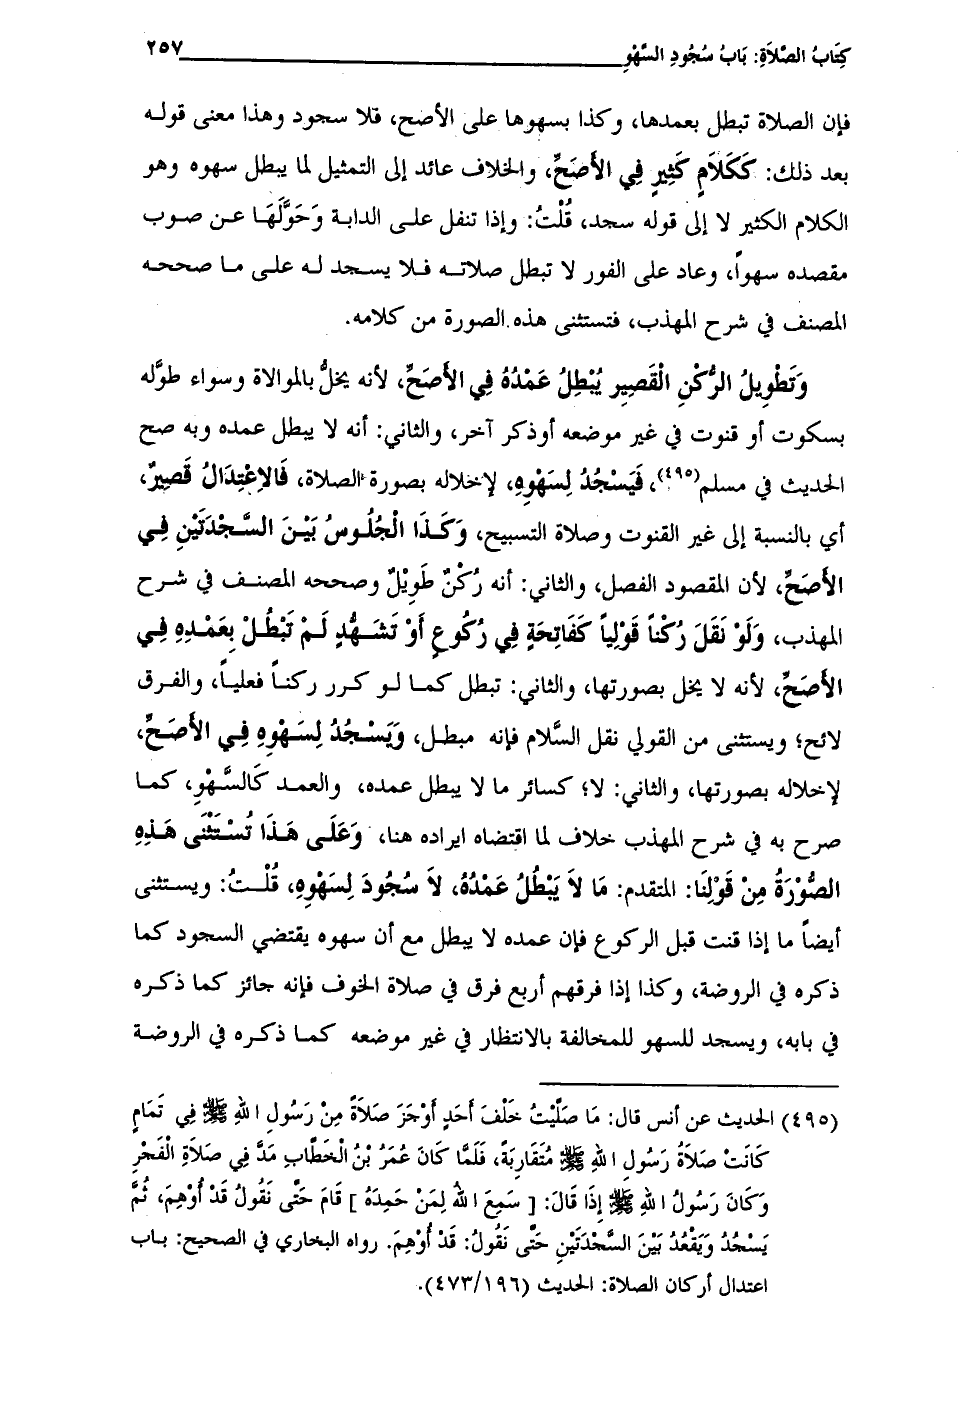 كِتَابُ الصَّلَاةِ: بَابُ سُجُودِ السَّهْوِ ٢٥٧
فإن الصلاة تبطل بعمدها، وكذا بسهوها على الأصح، قلا سجود وهذا معنى قولـه
بعد ذلك: كَكَلَامٍ كَثِيرٍ فِي الأَصَحِّ، والخلاف عائد إلى التمثيل لما يبطل سهوه وهو
الكلام الكثير لا إلى قوله سجد، قُلْتُ: وإذا تنفل علـى الدابة وَحَوَّلَهَـا عـن صـوب
مقصده سهواً، وعاد على الفور لا تبطل صلاتـه فـلا يسـجد لـه علـى مـا صححـه
المصنف في شرح المهذب، فتستثنى هذه الصورة من كلامه.
وَتَطْوِيلُ الرُّكْنِ الْقَصِيرِ يُبْطِلُ عَمْدُهُ فِي الأَصَحِّ، لأنه يخلُّ بالموالاة وسواء طوَّله
بسكوت أو قنوت في غير موضعه أوذكر آخر، والثاني: أنه لا يبطل عمده وبه صح
الحديث في مسلم(٤٩٥)، فَيَسْجُدُ لِسَهْوِهِ، لإخلاله بصورة الصلاة، فَالاِعْتِدَالُ قَصِيرٌ،
أي بالنسبة إلى غير القنوت وصلاة التسبيح، وَكَـذَا الْجُلُـوسُ بَيْـنَ السَّـجْدَتَيْنِ فِـي
الأَصَحِّ، لأن المقصود الفصل، والثاني: أنه رُكْنٌ طَوِيْلٌ وصححه المصنـف في شـرح
المهذب، وَلَوْ نَقَلَ رُكْناً قَوْلِياً كَفَاتِحَةٍ فِي رُكُوعٍ أَوْ تَشَـهُّدٍ لَـمْ تَبْطُـلْ بِعَمْـدِهِ فِـي
الأَصَحِّ، لأنه لا يخل بصورتها، والثاني: تبطل كمـا لـو كـرر ركنـاً فعليـاً، والفـرق
لائح؛ ويستثنى من القولي نقل السَّلام فإنه مبطـل، وَيَسْـجُدُ لِسَـهْوِهِ فِـي الأَصَـحِّ،
لإخلاله بصورتها، والثاني: لا؛ كسائر ما لا يبطل عمده، والعمـد كَالسَّـهْوِ، كمـا
صرح به في شرح المهذب خلاف لما اقتضاه ايراده هنا، وَعَلَـى هَـذَا تُسْـتَثْنَى هَـذِهِ
الصُّوْرَةُ مِنْ قَوْلِنَا: المتقدم: مَا لَا يُبْطِلُ عَمْدُهُ، لَا سُجُودَ لِسَهْوِهِ، قُلْـتُ: ويسـتثنى
أيضاً ما إذا قنت قبل الركوع فإن عمده لا يبطل مع أن سهوه يقتضي السجود كما
ذكره في الروضة، وكذا إذا فرقهم أربع فرق في صلاة الخوف فإنه جائز كما ذكـره
في بابه، ويسجد للسهو للمخالفة بالانتظار في غير موضعه كمـا ذكـره في الروضـة
(٤٩٥) الحديث عن أنس قال: مَا صَلَّيْتُ خَلْفَ أَحَدٍ أَوْجَزَ صَلَاةً مِنْ رَسُولِ اللهِ ﷺ فِي تَمَامٍ
كَانَتْ صَلَاةُ رَسُولِ اللهِ ﷺ مُتَقَارِبَةً، فَلَمَّا كَانَ عُمَرُ بْنُ الْخَطَّابِ مَدَّ فِي صَلَاةِ الْفَجْرِ
وَكَانَ رَسُولُ اللهِ ﷺ إِذَا قَالَ: [ سَمِعَ اللهُ لِمَنْ حَمِدَهُ ] قَامَ حَتَّى نَقُولُ قَدْ أُوْهِمَ، ثُمَّ
يَسْجُدُ وَيَقْعُدُ بَيْنَ السَّجْدَتَيْنِ حَتَّى نَقُولُ: قَدْ أُوْهِمَ. رواه البخاري في الصحيح: بـاب
اعتدال أركان الصلاة: الحديث (٤٧٣/١٩٦).